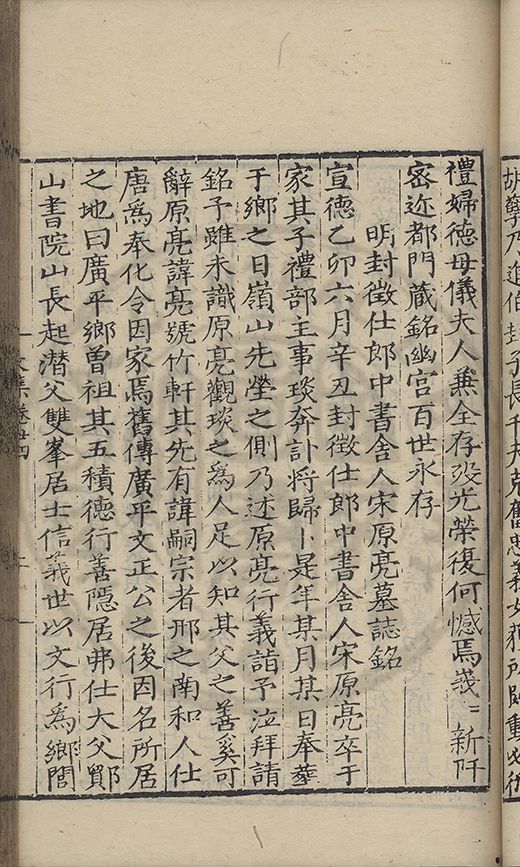 禮婦德母儀夫人兼全存歿光榮復何憾焉峩〻新阡
密迩都門蔵銘幽宫百世永存
明封徵仕郎中書舍人宋原亮墓誌銘
宣德乙卯六月辛丑封徵仕郎中書舍人宋原亮卒于
家其子禮部主事琰奔訃將歸卜是年某月某日奉葬
于鄉之日嶺山先塋之側乃述原亮行義詣予泣拜請
銘予雖未識原亮觀琰之爲人足以知其父之善奚可
辭原亮諱亮號竹軒其先有諱嗣宗者邢之南和人仕
唐爲奉化令因家焉舊傳廣平文正公之後因名所居
之地曰廣平鄉曾祖其五積德行善隱居弗仕大父鄮
山書院山長起潜父雙峯居士信義世以文行爲鄉閭
文集卷廿四